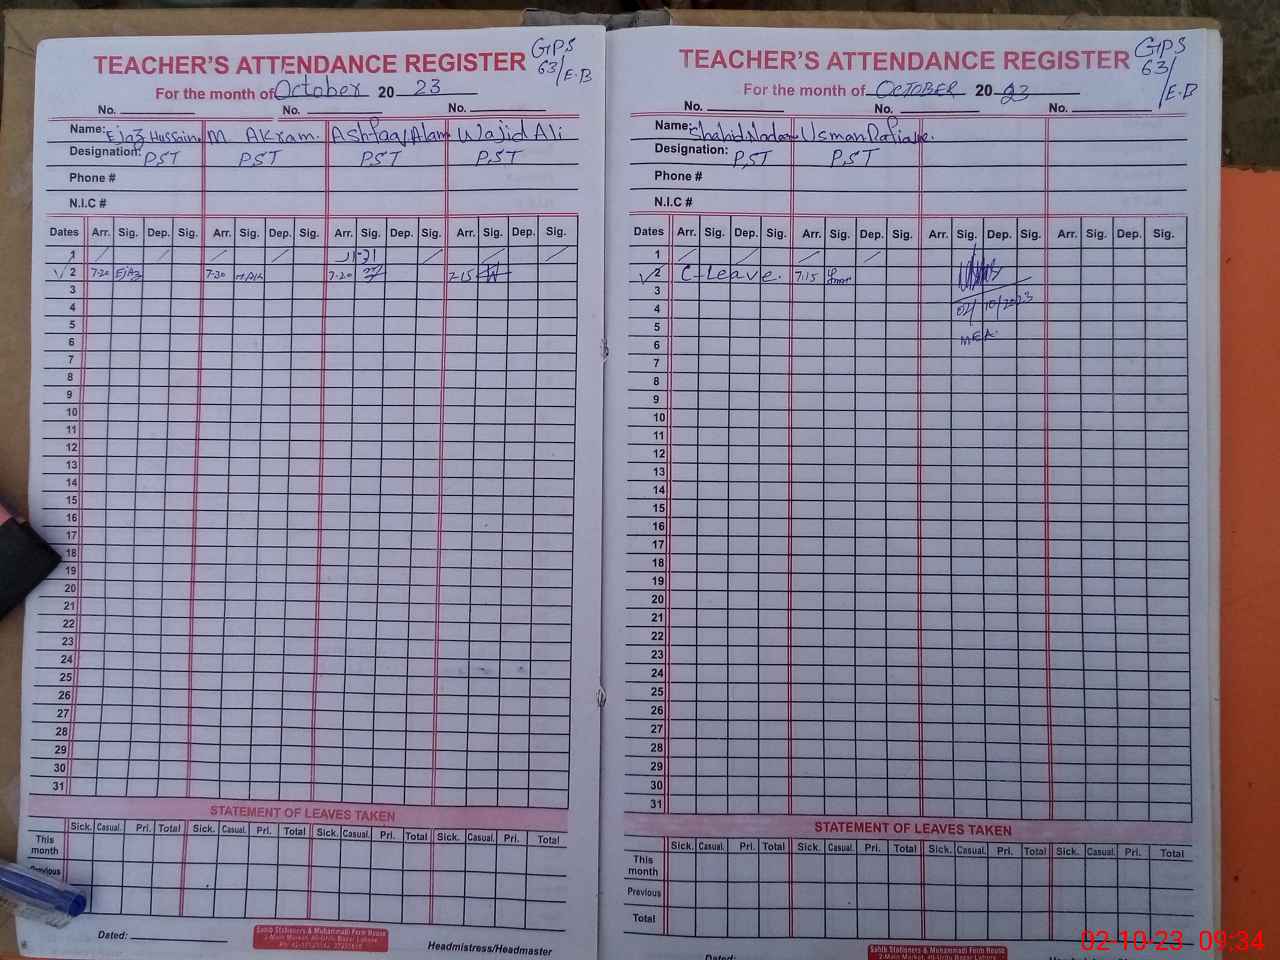 TEACHER'S ATTENDANCE REGISTER
GPS
63/E.B
For the month of October 20 23
No. No. No.
Name: Ejaz Hussain. M Akram. Ashfaq Alam Wajid Ali
Designation: PST PST PST PST
Phone #
N.I.C #
Dates Arr. Sig. Dep. Sig. Arr. Sig. Dep. Sig. Arr. Sig. Dep. Sig. Arr. Sig. Dep. Sig.
1
2 7-20 Ejaz 7-30 7-20 7-15
3
4
5
6
7
8
9
10
11
12
13
14
15
16
17
18
19
20
21
22
23
24
25
26
27
28
29
30
31
STATEMENT OF LEAVES TAKEN
Sick. Casual. Pri. Total Sick. Casual. Pri. Total Sick. Casual. Pri. Total Sick. Casual. Pri. Total
This month
Previous
Dated:
Sahib Stationers & Muhammadi Form House
2-Main Market, 40-Urdu Bazar Lahore
Headmistress/Headmaster
TEACHER'S ATTENDANCE REGISTER
GPS
63/E.B
For the month of OCTOBER 20 23
No. No.
Name: Shahid Usman
Designation: PST PST
Phone #
N.I.C #
Dates Arr. Sig. Dep. Sig. Arr. Sig. Dep. Sig. Arr. Sig. Dep. Sig. Arr. Sig. Dep. Sig.
1
2 C-Leave. 7:15
3
4 02/10/2023
5
6 MEA
7
8
9
10
11
12
13
14
15
16
17
18
19
20
21
22
23
24
25
26
27
28
29
30
31
STATEMENT OF LEAVES TAKEN
Sick. Casual. Pri. Total Sick. Casual. Pri. Total Sick. Casual. Pri. Total Sick. Casual. Pri. Total
This month
Previous
Total
Dated:
Sahib Stationers & Muhammadi Form House
2-Main Market, 40-Urdu Bazar Lahore
02-10-23 09:34